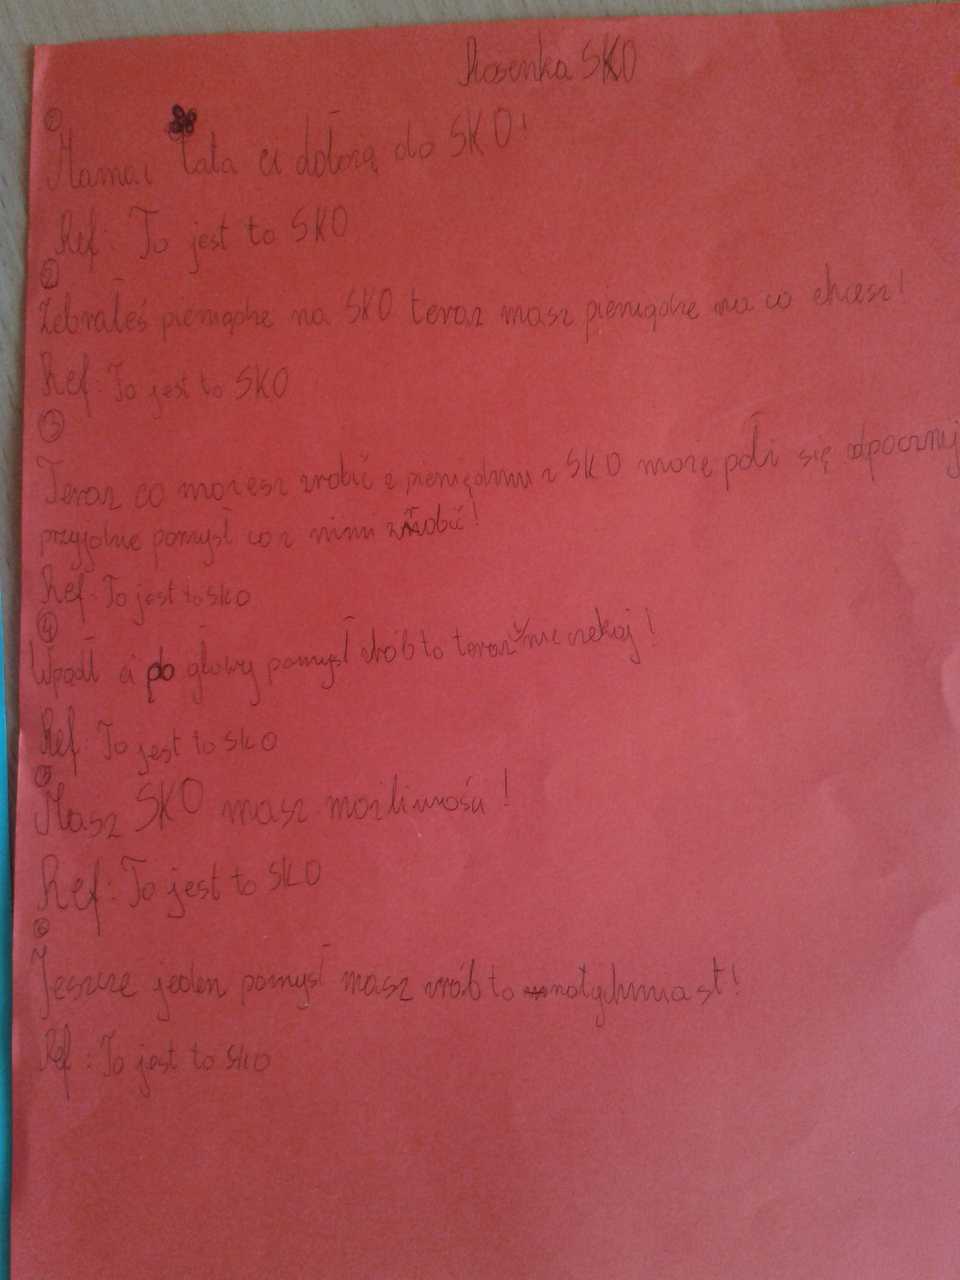 Piosenka SKO
①
Mama i tata ci dołożą do SKO!
Ref: To jest to SKO
②
Zebrałeś pieniądze na SKO teraz masz pieniądze na co chcesz!
Ref: To jest to SKO
③
Teraz co możesz zrobić z pieniędzmi z SKO może połi się odpocznij
przyjdzie pomysł co z nimi zrobić!
Ref: To jest to SKO
④
Wpadł ci do głowy pomysł zrób to teraz nie czekaj!
Ref: To jest to SKO
⑤
Masz SKO masz możliwości!
Ref: To jest to SKO
⑥
Jeszcze jeden pomysł masz zrób to natychmiast!
Ref: To jest to SKO